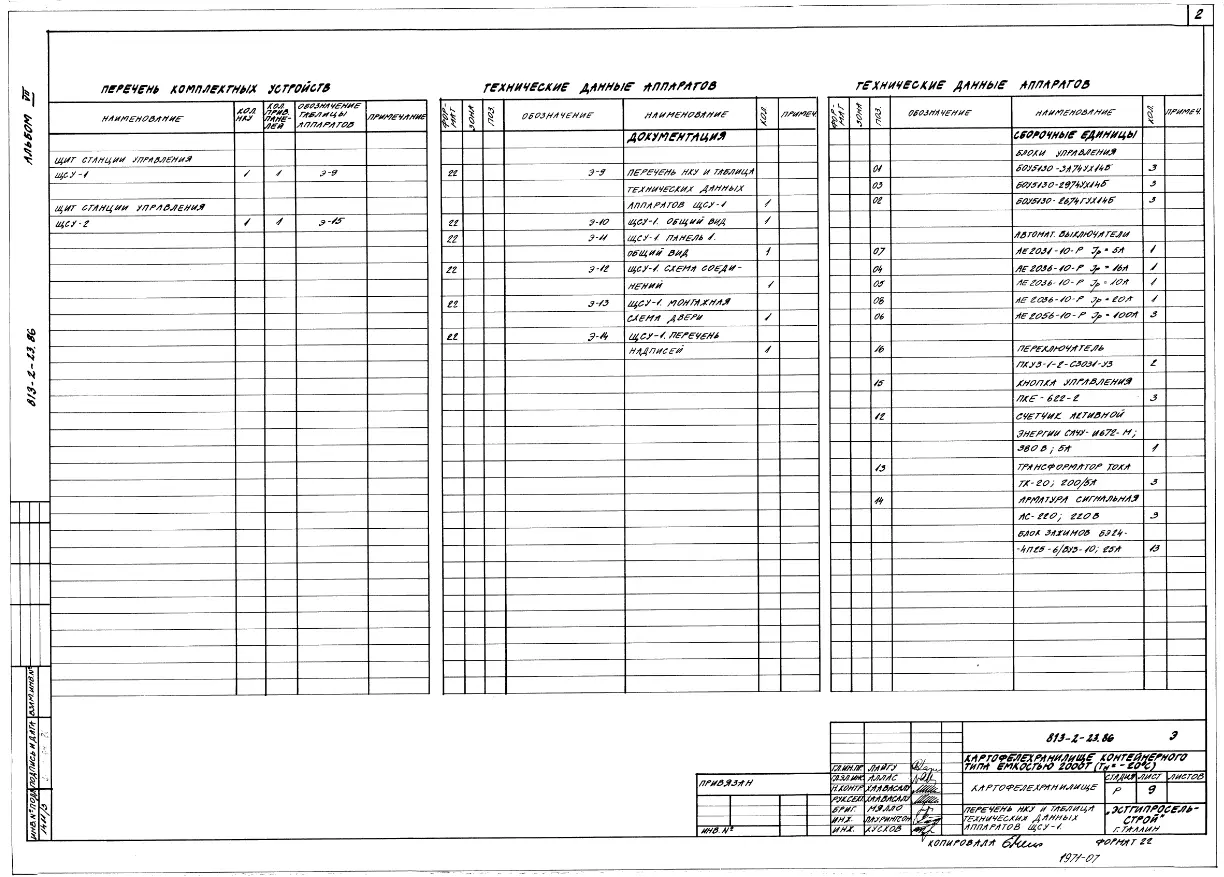 2
АЛЬБОМ VII
813-2-23.86
ПЕРЕЧЕНЬ КОМПЛЕКТНЫХ УСТРОЙСТВ
НАИМЕНОВАНИЕ КОЛ. НКУ КОЛ. ПРИВ. ПАНЕ-ЛЕЙ ОБОЗНАЧЕНИЕ ТАБЛИЦЫ АППАРАТОВ ПРИМЕЧАНИЕ
ЩИТ СТАНЦИИ УПРАВЛЕНИЯ
ЩСУ-1 1 1 Э-9
ЩИТ СТАНЦИИ УПРАВЛЕНИЯ
ЩСУ-2 1 1 Э-15
ТЕХНИЧЕСКИЕ ДАННЫЕ АППАРАТОВ
ФОР-МАТ ЗОНА ПОЗ. ОБОЗНАЧЕНИЕ НАИМЕНОВАНИЕ КОЛ. ПРИМЕЧ.
ДОКУМЕНТАЦИЯ
22 Э-9 ПЕРЕЧЕНЬ НКУ И ТАБЛИЦА
ТЕХНИЧЕСКИХ ДАННЫХ
АППАРАТОВ ЩСУ-1 1
22 Э-10 ЩСУ-1. ОБЩИЙ ВИД 1
22 Э-11 ЩСУ-1 ПАНЕЛЬ 1.
ОБЩИЙ ВИД 1
22 Э-12 ЩСУ-1. СХЕМА СОЕДИ-
НЕНИЙ 1
22 Э-13 ЩСУ-1. МОНТАЖНАЯ
СХЕМА ДВЕРИ 1
22 Э-14 ЩСУ-1. ПЕРЕЧЕНЬ
НАДПИСЕЙ 1
ТЕХНИЧЕСКИЕ ДАННЫЕ АППАРАТОВ
ФОР-МАТ ЗОНА ПОЗ. ОБОЗНАЧЕНИЕ НАИМЕНОВАНИЕ КОЛ. ПРИМЕЧ.
СБОРОЧНЫЕ ЕДИНИЦЫ
БЛОКИ УПРАВЛЕНИЯ
01 БОУ5130-3А74УХЛ4Б 3
03 БОУ5130-2974УХЛ4Б 3
02 БОУ5130-2674ГУХЛ4Б 3
АВТОМАТ. ВЫКЛЮЧАТЕЛИ
07 АЕ 2031-10-Р Jр = 5А 1
04 АЕ 2036-10-Р Jр = 16А 1
05 АЕ 2036-10-Р Jр = 10А 1
08 АЕ 2036-10-Р Jр = 20А 1
06 АЕ 2056-10-Р Jр = 100А 3
16 ПЕРЕКЛЮЧАТЕЛЬ
ПКУ3-1-2-С3031-У3 2
15 КНОПКА УПРАВЛЕНИЯ
ПКЕ-622-2 3
12 СЧЕТЧИК АКТИВНОЙ
ЭНЕРГИИ САЧУ-И672-М;
380 В; 5А 1
13 ТРАНСФОРМАТОР ТОКА
ТК-20; 200/5А 3
14 АРМАТУРА СИГНАЛЬНАЯ
АС-220; 220 В 3
БЛОК ЗАЖИМОВ БЗ24-
-4П25-В/ВУ3-10; 25А 13
813-2-23.86 Э
КАРТОФЕЛЕХРАНИЛИЩЕ КОНТЕЙНЕРНОГО
ТИПА ЕМКОСТЬЮ 2000Т (Тн = -20°С)
КАРТОФЕЛЕХРАНИЛИЩЕ
СТАДИЯ ЛИСТ ЛИСТОВ
Р 9
ПЕРЕЧЕНЬ НКУ И ТАБЛИЦА
ТЕХНИЧЕСКИХ ДАННЫХ
АППАРАТОВ ЩСУ-1.
„ЭСТГИПРОСЕЛЬ-
СТРОЙ"
Г. ТАЛЛИН
ГЛ.ИН.ПР. ЛАЙГУ
ГЛ.ЭЛ.ИНЖ. АЛЛАС
Н.КОНТР. ХААВАСАЛУ
РУК.СЕКТ. ХААВАСАЛУ
БРИГ. МЯЛЛО
ИНЖ. ЛАУРИНГСОН
ИНЖ. КУСКОВ
ПРИВЯЗАН
ИНВ. №
ИНВ.№ ПОДЛ. ПОДПИСЬ И ДАТА ВЗАМ.ИНВ.№
КОПИРОВАЛА ФОРМАТ 22
1971-07